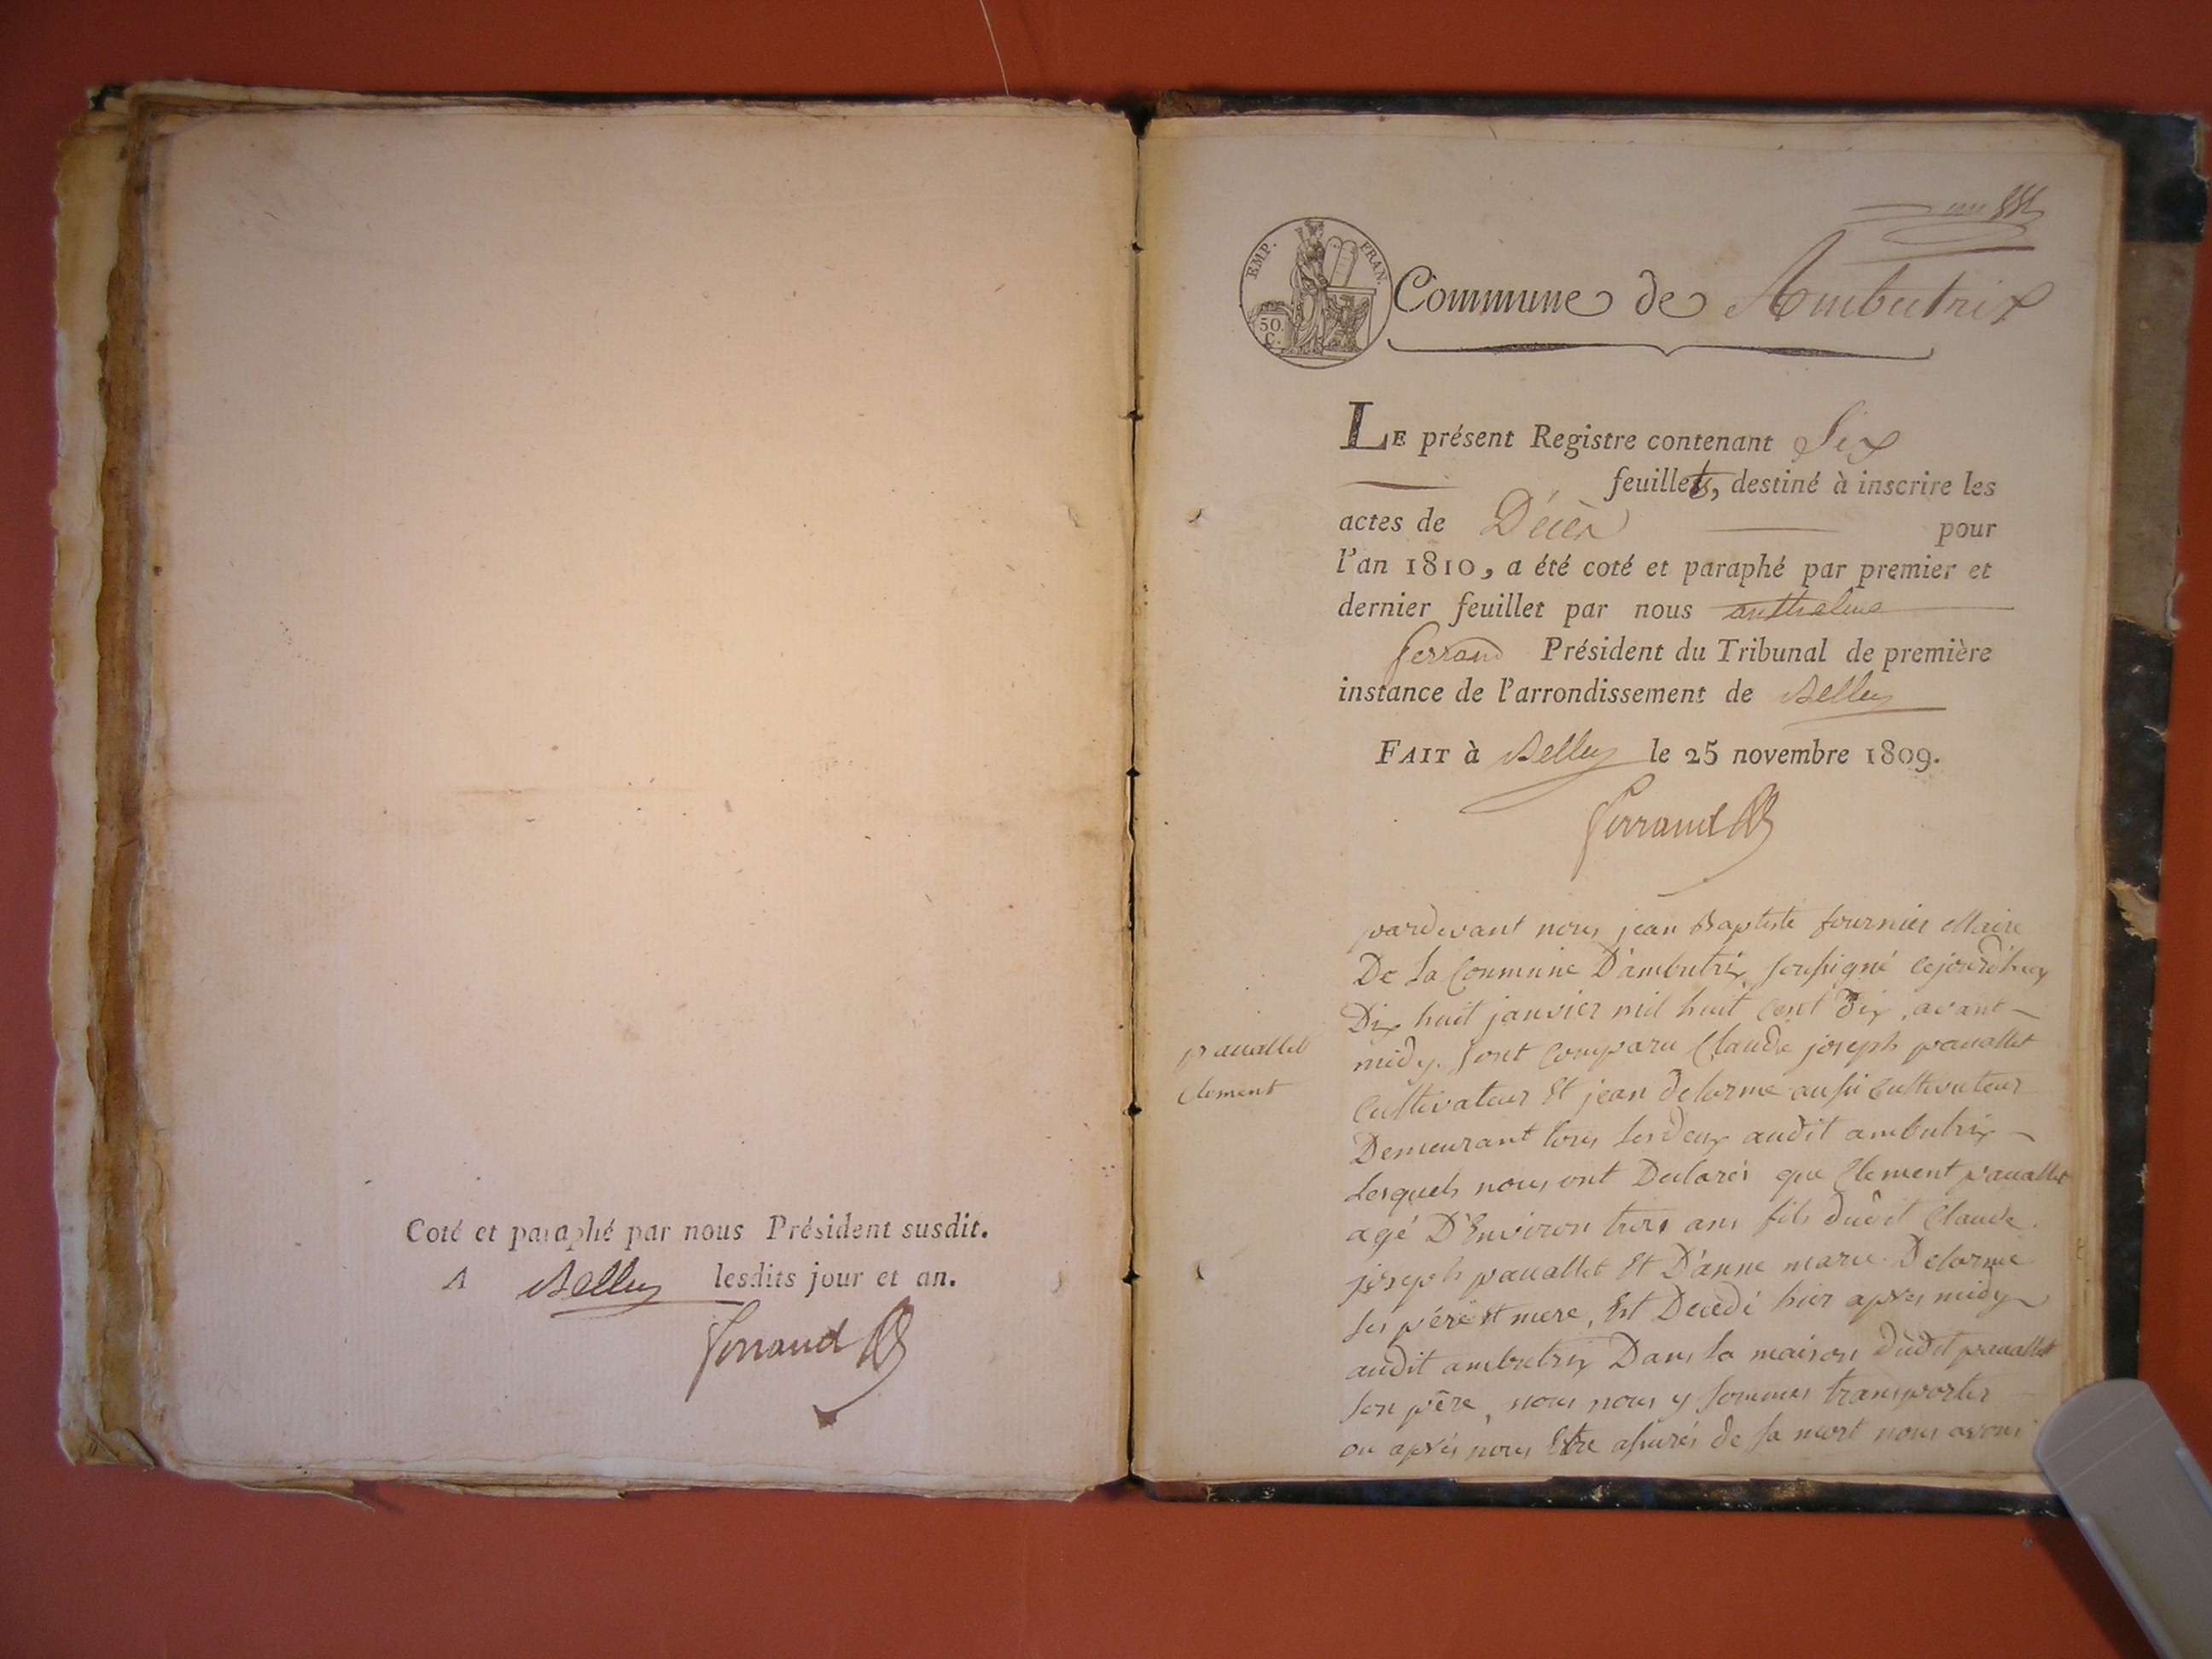 Coté et paraphé par nous Président susdit.
A Belley lesdits jour et an.
Ferrand
EMP. FRAN.
50.
C.
Commune de Ambutrix
LE présent Registre contenant Six
feuillets, destiné à inscrire les
actes de Décès pour
l'an 1810, a été coté et paraphé par premier et
dernier feuillet par nous anthelme
ferrand Président du Tribunal de première
instance de l'arrondissement de Belley
FAIT à Belley le 25 novembre 1809.
Ferrand
pardevant nous jean Baptiste fournier Maire
De La Commune D'ambutrix soussigné cejourd'huy
Dix huit janvier mil huit cent Dix, avant
midy. sont comparu Claude joseph pauallet
Cultivateur Et jean delorme aussi Cultivateur
Demeurant tous les deux audit ambutrix
Lesquels nous ont Declarés que Clement pauallet
agé D'Environ trois ans fils dudit Claude
joseph pauallet Et D'anne marie Delorme
ses pére et mere, Est Decedé hier apres midy
audit ambutrix Dans la maison dudit pauallet
son pêre, nous nous y sommes transportés
ou aprés nous Etre assurés de sa mort nous avons
pauallet
Clement